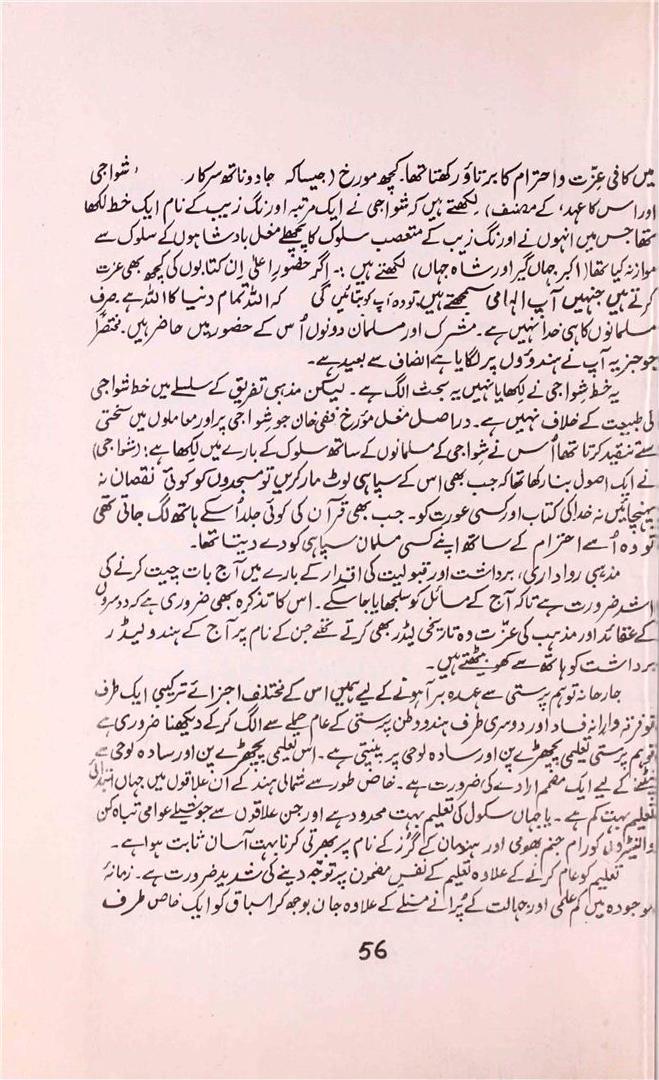 میں کافی عزّت واحترام کا برتاؤ رکھتا تھا۔ کچھ مورخ (جیسا کہ جادوناتھ سرکار، شواجی
اور اس کا عہد، کے مصنف) لکھتے ہیں کہ شواجی نے ایک مرتبہ اورنگ زیب کے نام ایک خط لکھا
تھا جس میں انہوں نے اورنگ زیب کے متعصب سلوک کا پچھلے مغل بادشاہوں کے سلوک سے
موازنہ کیا تھا (اکبر جہاں گیر اور شاہ جہاں) لکھتے ہیں :۔ اگر حضورِ اعلیٰ اِن کتابوں کی کچھ بھی عزت
کرتے ہیں جنہیں آپ الہامی سمجھتے ہیں تو وہ آپ کو بتائیں گی کہ اللہ تمام دنیا کا اللہ ہے صرف
مسلمانوں کا ہی خدا نہیں ہے۔ مشرک اور مسلمان دونوں اُس کے حضور میں حاضر ہیں۔ مختصراً
جو جزیہ آپ نے ہندوؤں پر لگایا ہے انصاف سے بعید ہے۔
یہ خط شواجی نے لکھا یا نہیں یہ بحث الگ ہے۔ لیکن مذہبی تفریق کے سلسلے میں خط شواجی
کی طبیعت کے خلاف نہیں ہے۔ دراصل مغل مؤرخ خفی خان جو شواجی پر اور معاملوں میں سختی
سے تنقید کرتا تھا اُس نے شواجی کے مسلمانوں کے ساتھ سلوک کے بارے میں لکھا ہے؛ (شواجی)
نے ایک اصول بنا رکھا تھا کہ جب بھی اس کے سپاہی لوٹ مار کریں تو مسجدوں کو کوئی نقصان نہ
پہنچائیں نہ خدا کی کتاب اور کسی عورت کو۔ جب بھی قرآن کی کوئی جلد اُسکے ہاتھ لگ جاتی تھی
تو وہ اُسے احترام کے ساتھ اپنے کسی مسلمان سپاہی کو دے دیتا تھا۔
مذہبی رواداری، برداشت اور قبولیت کی اقدار کے بارے میں آج بات چیت کرنے کی
اشد ضرورت ہے تاکہ آج کے مسائل کو سلجھایا جاسکے۔ اس کا تذکرہ بھی ضروری ہے کہ دوسروں
کے عقائد اور مذہب کی عزّت وہ تاریخی لیڈر بھی کرتے تھے جن کے نام پر آج کے ہندو لیڈر
برداشت کو ہاتھ سے کھو بیٹھتے ہیں۔
جارحانہ توہم پرستی سے عہدہ برآ ہونے کے لیے ہمیں اس کے مختلف اجزائے ترکیبی ایک طرف
تو فرقہ وارانہ فساد اور دوسری طرف ہندو وطن پرستی کے عام حملے سے الگ کرکے دیکھنا ضروری ہے
توہم پرستی تعلیمی پچھڑے پن اور سادہ لوحی پر پنپتی ہے۔ اس تعلیمی پچھڑے پن اور سادہ لوحی سے
نپٹنے کے لیے ایک مصمم ارادے کی ضرورت ہے۔ خاص طور سے شمالی ہند کے اُن علاقوں میں جہاں ابتدائی
تعلیم بہت کم ہے۔ یا جہاں سکول کی تعلیم بہت محدود ہے اور جن علاقوں سے جوشیلے عوامی تباہ کن
والنٹیروں کو رام جنم بھومی اور ہنومان کے گُرز کے نام پر بھرتی کرنا بہت آسان ثابت ہوا ہے۔
تعلیم کو عام کرنے کے علاوہ تعلیم کے نفسِ مضمون پر توجّہ دینے کی شدید ضرورت ہے۔ زمانۂ
موجودہ میں کم علمی اور جہالت کے پُرانے مسئلے کے علاوہ جان بوجھ کر اسباق کو ایک خاص طرف
56